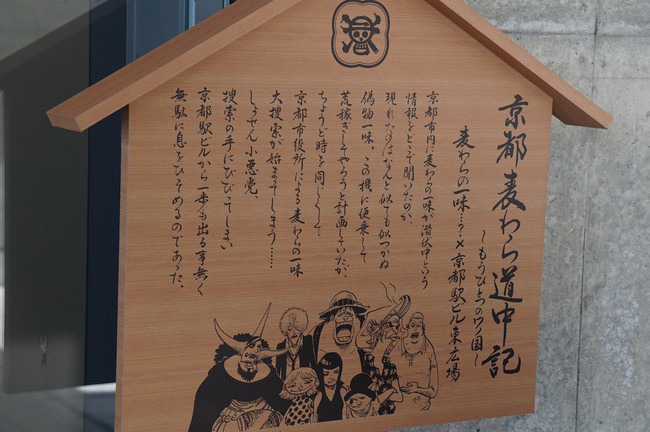 京都麦わら道中記
～もうひとつのワノ国～
麦わらの一味…？×京都駅ビル東広場
京都市内に麦わらの一味が潜伏中という
情報をどこで聞いたのか、
現れたのはなんと似ても似つかぬ
偽物一味。この機に便乗して
荒稼ぎしてやろうと計画していたが、
ちょうど時を同じくして
京都市役所による麦わらの一味
大捜索が始まってしまう……
しょせん小悪党、
捜索の手にびびってしまい
京都駅ビルから一歩も出る事無く
無駄に息をひそめるのであった。